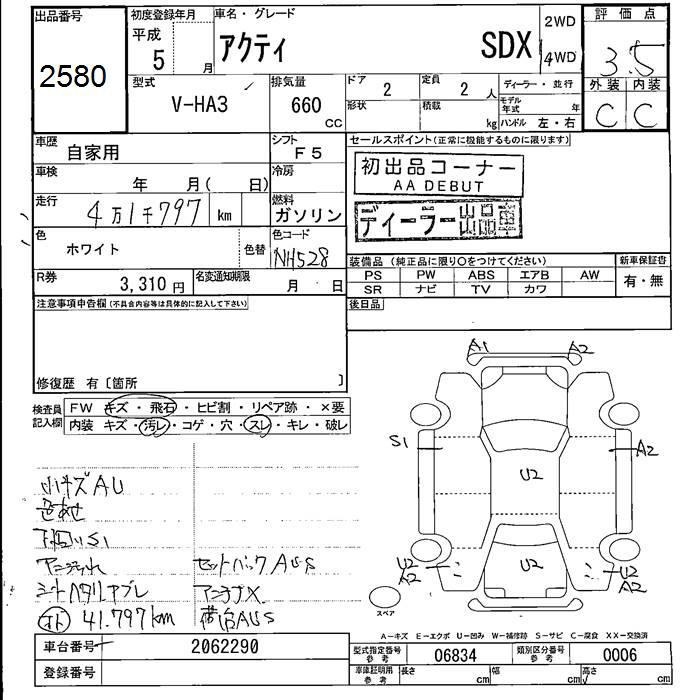 出品番号
2580
初度登録年月
平成
5 月
車名・グレード
アクティ SDX
2WD
4WD
評価点
3.5
外装 内装
C C
型式
V-HA3
排気量
660
CC
ドア
2
定員
2 人
形状
積載
kg
ディーラー・並行
モデル年式 年
ハンドル 左・右
車歴
自家用
シフト
F5
車検
年 月( 日)
冷房
走行
4万1千797 km
燃料
ガソリン
色
ホワイト
色替
色コード
NH528
R券
3,310 円
名変通知期限
月 日
セールスポイント(正常に機能するものに限ります)
初出品コーナー
AA DEBUT
ディーラー出品車
装備品 (純正品に限り○をつけてください)
新車保証書
PS PW ABS エアB AW
SR ナビ TV カワ
有・無
後日品
注意事項申告欄(不具合内容等は具体的に記入して下さい)
修復歴 有〔箇所 〕
検査員
記入欄
FW キズ・飛石・ヒビ割・リペア跡・×要
内装 キズ・汚レ・コゲ・穴・スレ・キレ・破レ
小キズAU
色あせ
S1
セットバックAUS
アンテナX
シートヘタリ
41.797km
荷台AUS
A1 A2
S1
A2
U2
U2
U2
A2
U2
A2
スペア
A―キズ E―エクボ U―凹み W―補修跡 S―サビ C―腐食 XX―交換済
車台番号
2062290
登録番号
型式指定番号
参考
06834
類別区分番号
参考
0006
車庫証明用
参考
長さ cm
幅 cm
高さ cm